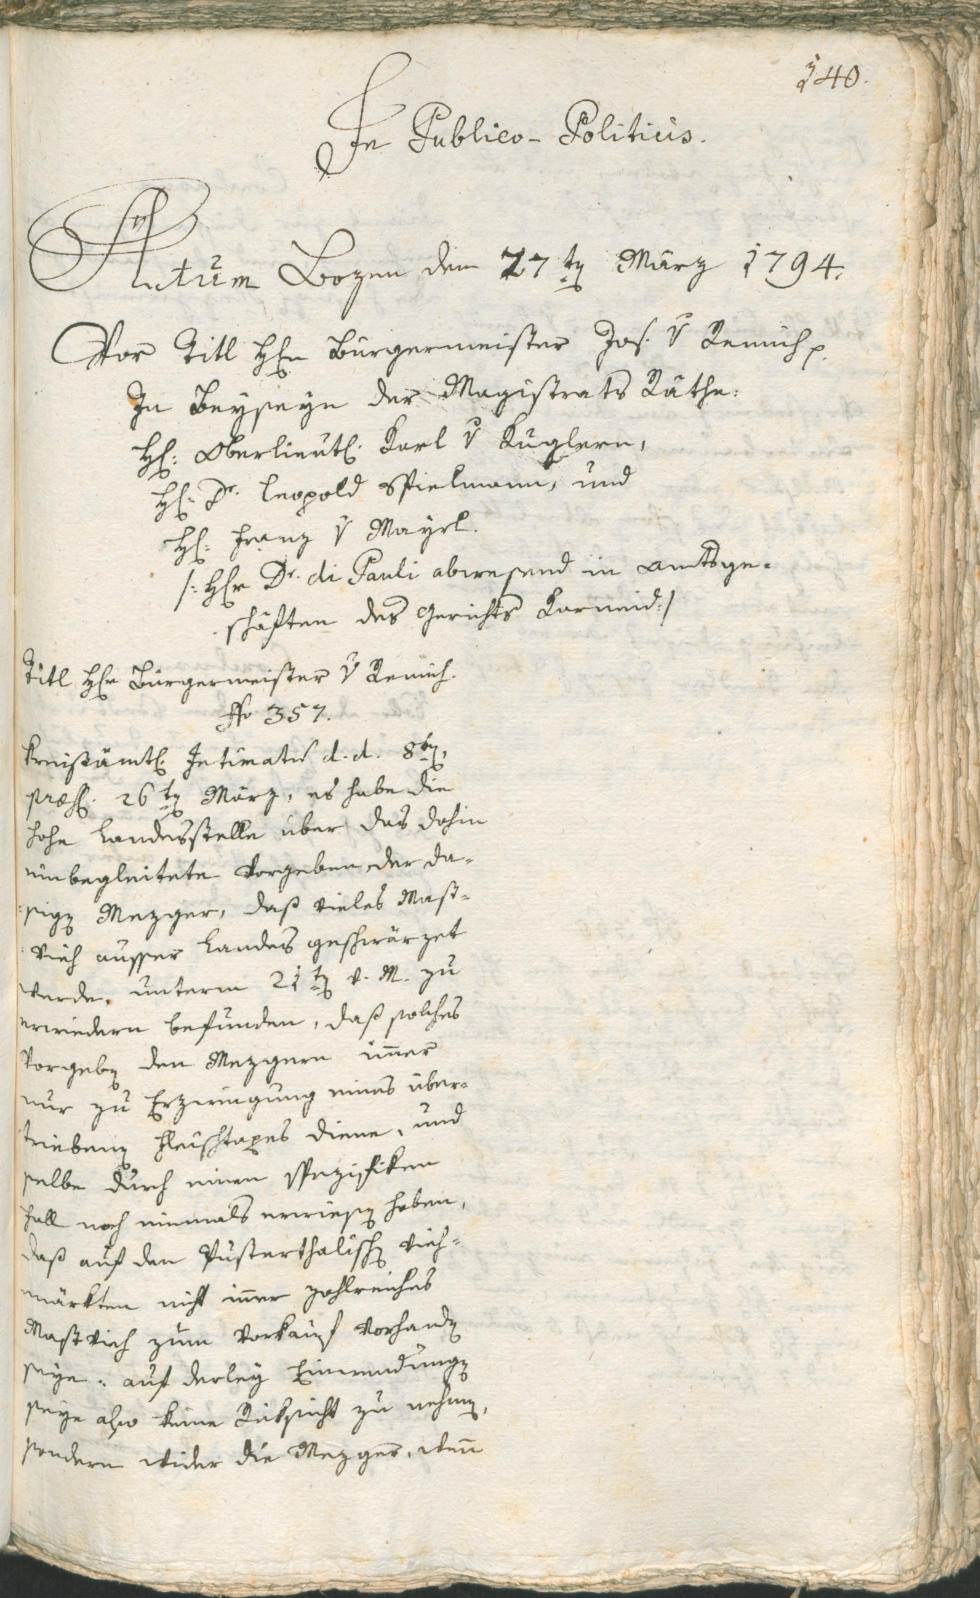 140.
In Publico-Politicis.
Actum Bozen den 27ten März 1794.
Vor Titl Hℓn Bürgermeister Jos. v Remich p.
In Beyseyn der Magistrats Räthe:
Hℓ: Oberlieutℓ. Karl v Kuglern,
Hℓ: Dr. Leopold Spielmann, und
Hℓ: Franz v Mayrl.
/: Hℓr Dr. di Pauli abwesend in Amtsge-
schäften des Gerichts Karneid :/
Titl Hℓr Bürgermeister v Remich.
No 357.
Kreisämtℓ. Intimatum d. d. 8ten,
præsℓ. 26ten März, es habe die
hohe Landesstelle über das dahin
einbegleitete Vorgeben der da-
sigen Mezger, daß vieles Mast-
vieh ausser Landes geschwärzet
werde, unterm 21ten v. M. zu
erwiedern befunden, daß solches
Vorgeben den Mezgern immer
nur zu Erzwingung eines über-
triebenen Fleischtaxes diene, und
selbe durch einen spezifiken
Fall noch niemals erwiesen haben,
daß auf den Pusterthalischen Vieh-
märkten nicht immer zahlreiches
Mastvieh zum Verkauf vorhanden
seye: auf derley Einwendungen
seye also keine Rüksicht zu nehmen,
sondern wider die Mezger, wenn